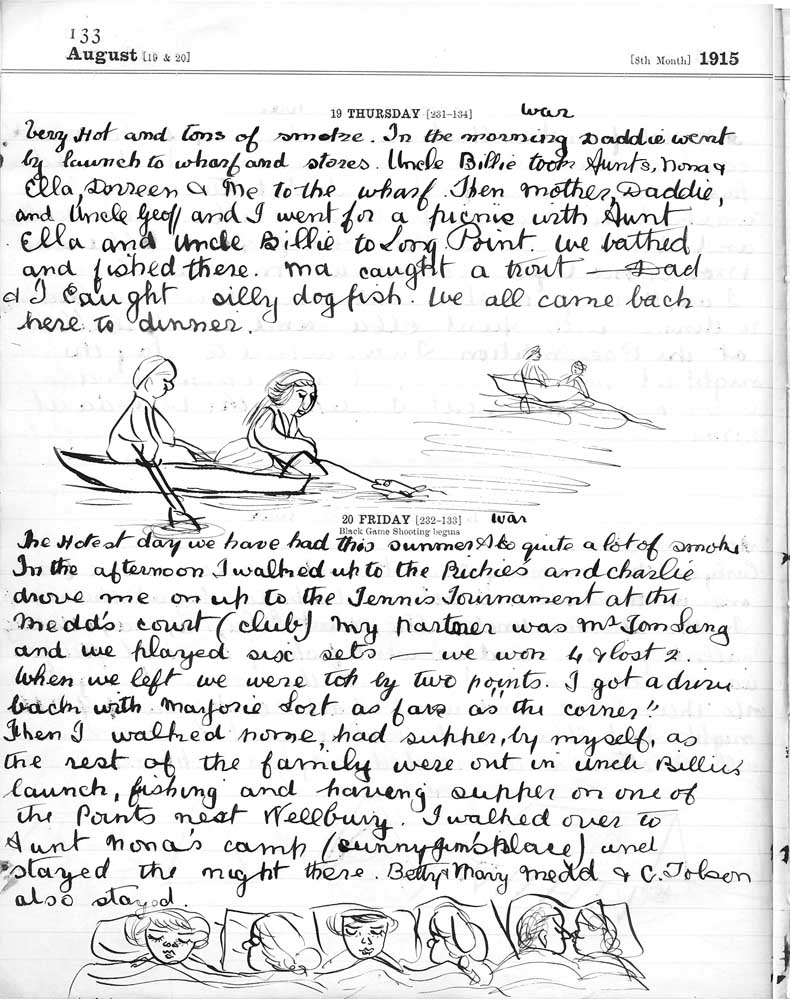 133
August [19 & 20] [8th Month] 1915
19 THURSDAY [231-134] War
Very Hot and tons of smoke. In the morning Daddie went
by launch to wharf and stores. Uncle Billie took Aunts, Nona &
Ella, Dorreen & Me to the wharf. Then mother, Daddie,
and Uncle Geoff and I went for a picnic with Aunt
Ella and Uncle Billie to Long Point. We bathed
and fished there. Ma caught a trout — Dad
& I Caught silly dogfish. We all came back
here to dinner.
20 FRIDAY [232-133] War
Black Game Shooting begins
The Hotest day we have had this summer & also quite a lot of smoke
In the afternoon I walked up to the Richies and Charlie
drove me on up to the Tennis Tournament at the
Medd's court (club) My partner was Mr Tom Lang
and we played six sets — we won 4 & lost 2.
When we left we were top by two points. I got a drive
back with Marjorie Sort as far as "the corner".
Then I walked home, had supper, by myself, as
the rest of the family were out in Uncle Billies
launch, fishing and having supper on one of
the Points next Wellbury. I walked over to
Aunt Nona's camp (Sunny Jim's Place) and
stayed the night there. Betty & Mary Medd & C. Tolson
also stayed.